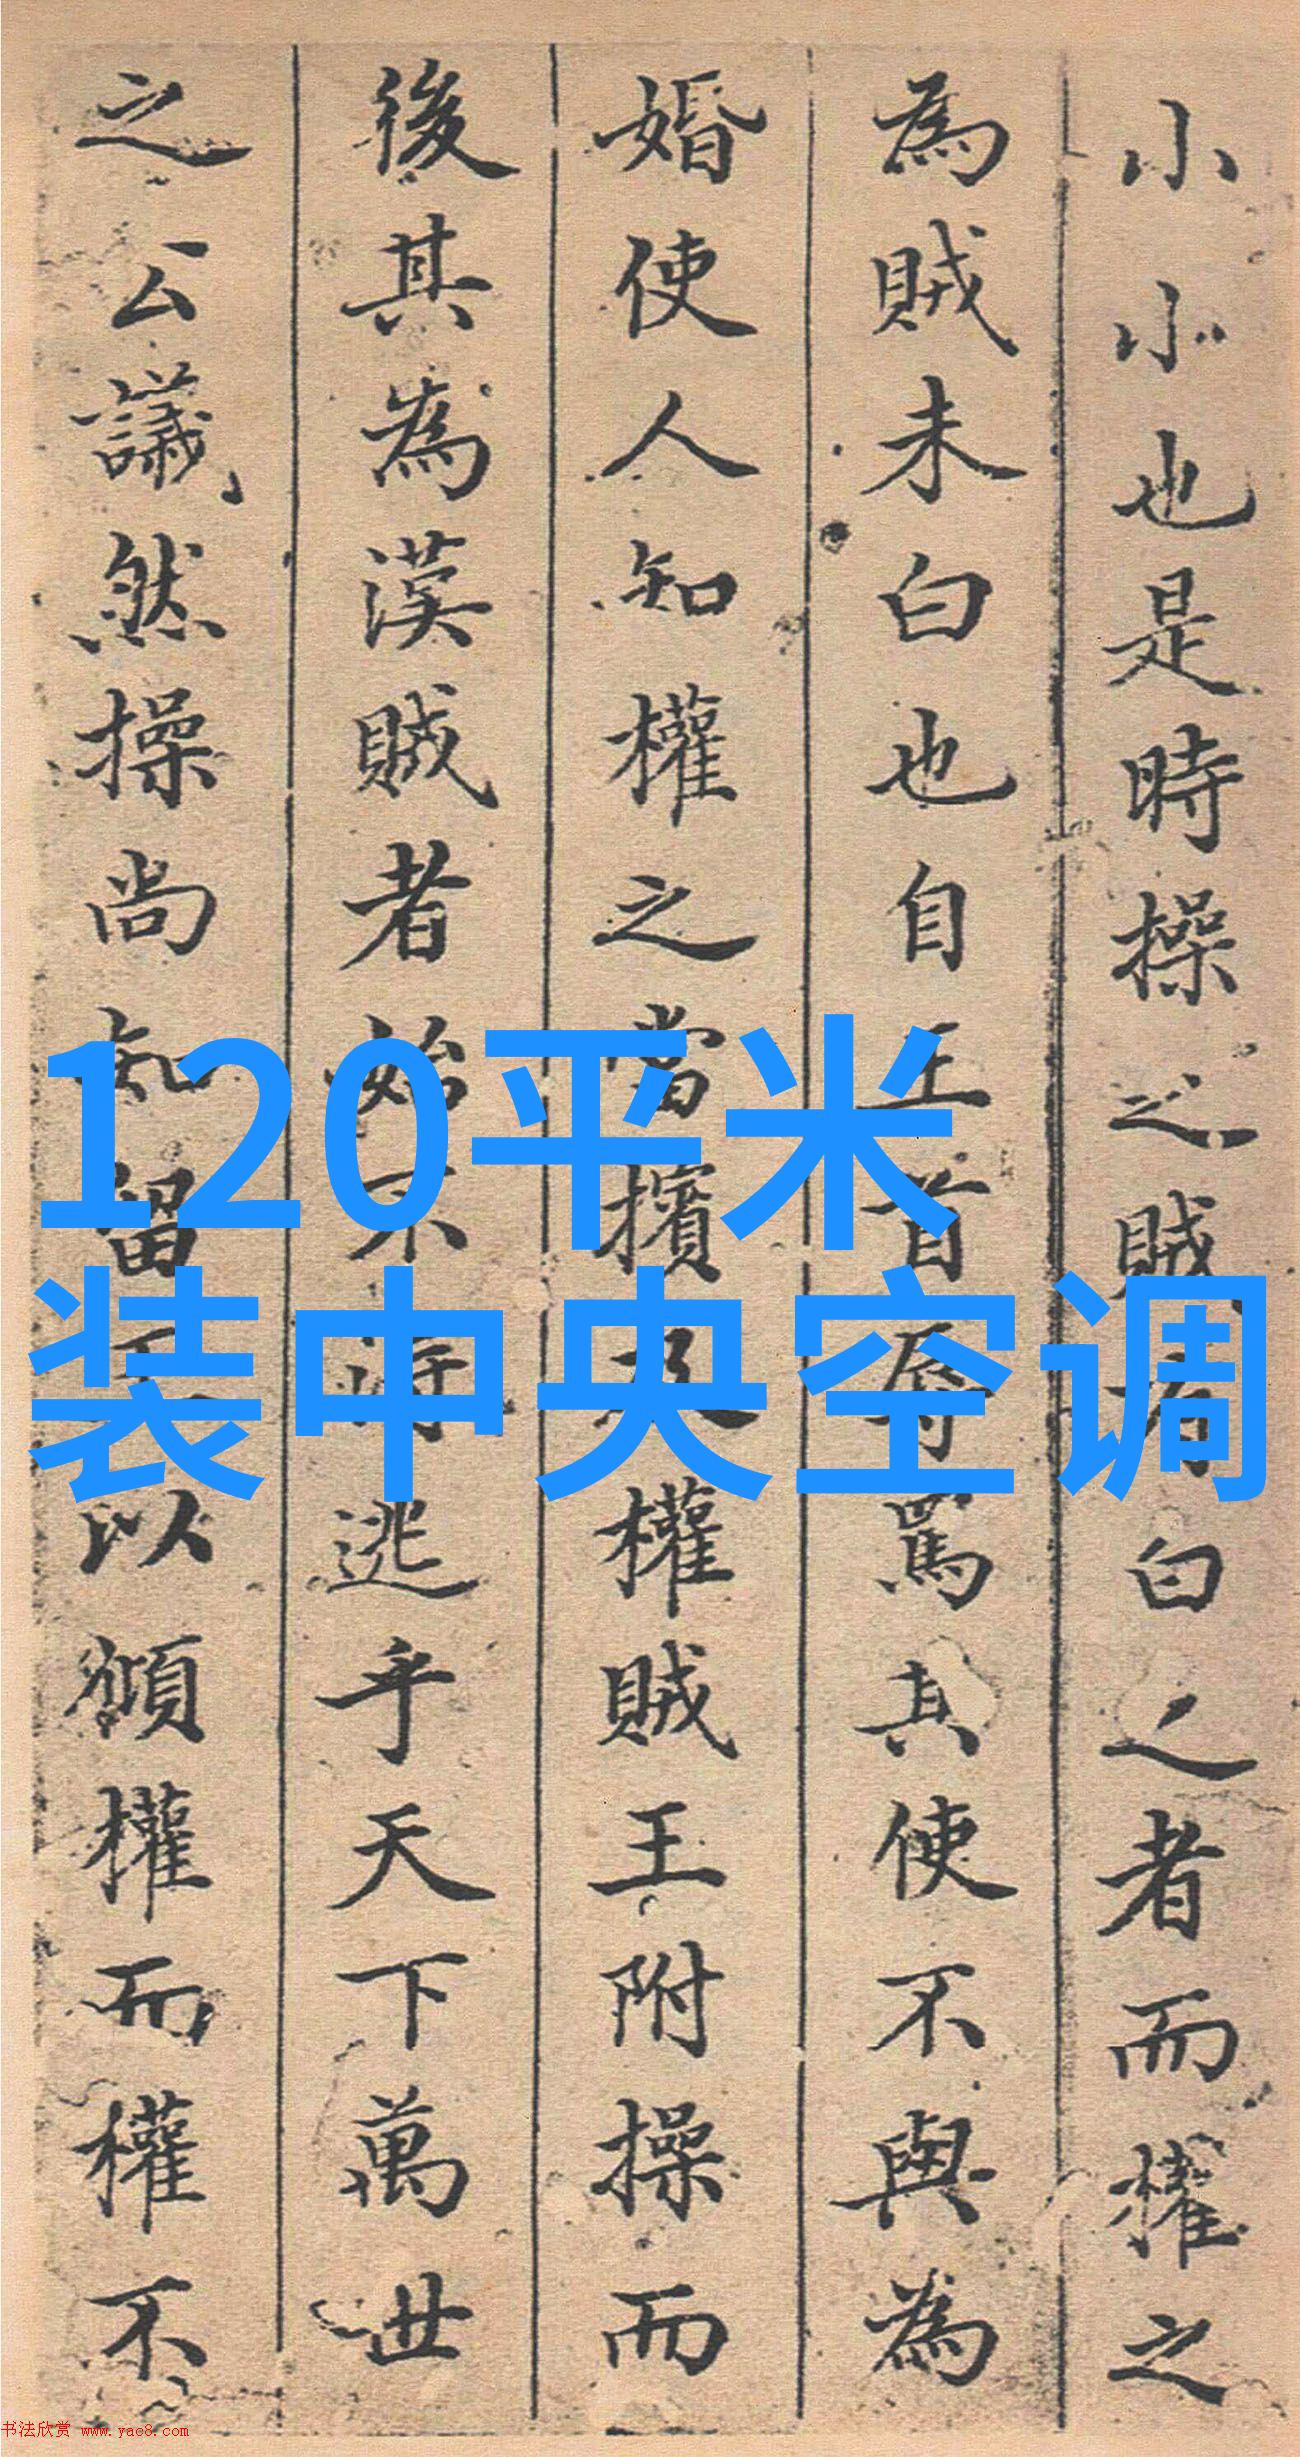 小小也是時操之賊有白之者而權之
為賊未白也自王首辱罵其使不與為
婚使人知權之當擯及權賊王附操而
後其為漢賊者始不得逃乎天下萬世
之公議然操尚知留王以權而權不
120平米
装中央空调
书法欣赏 www.yac8.com